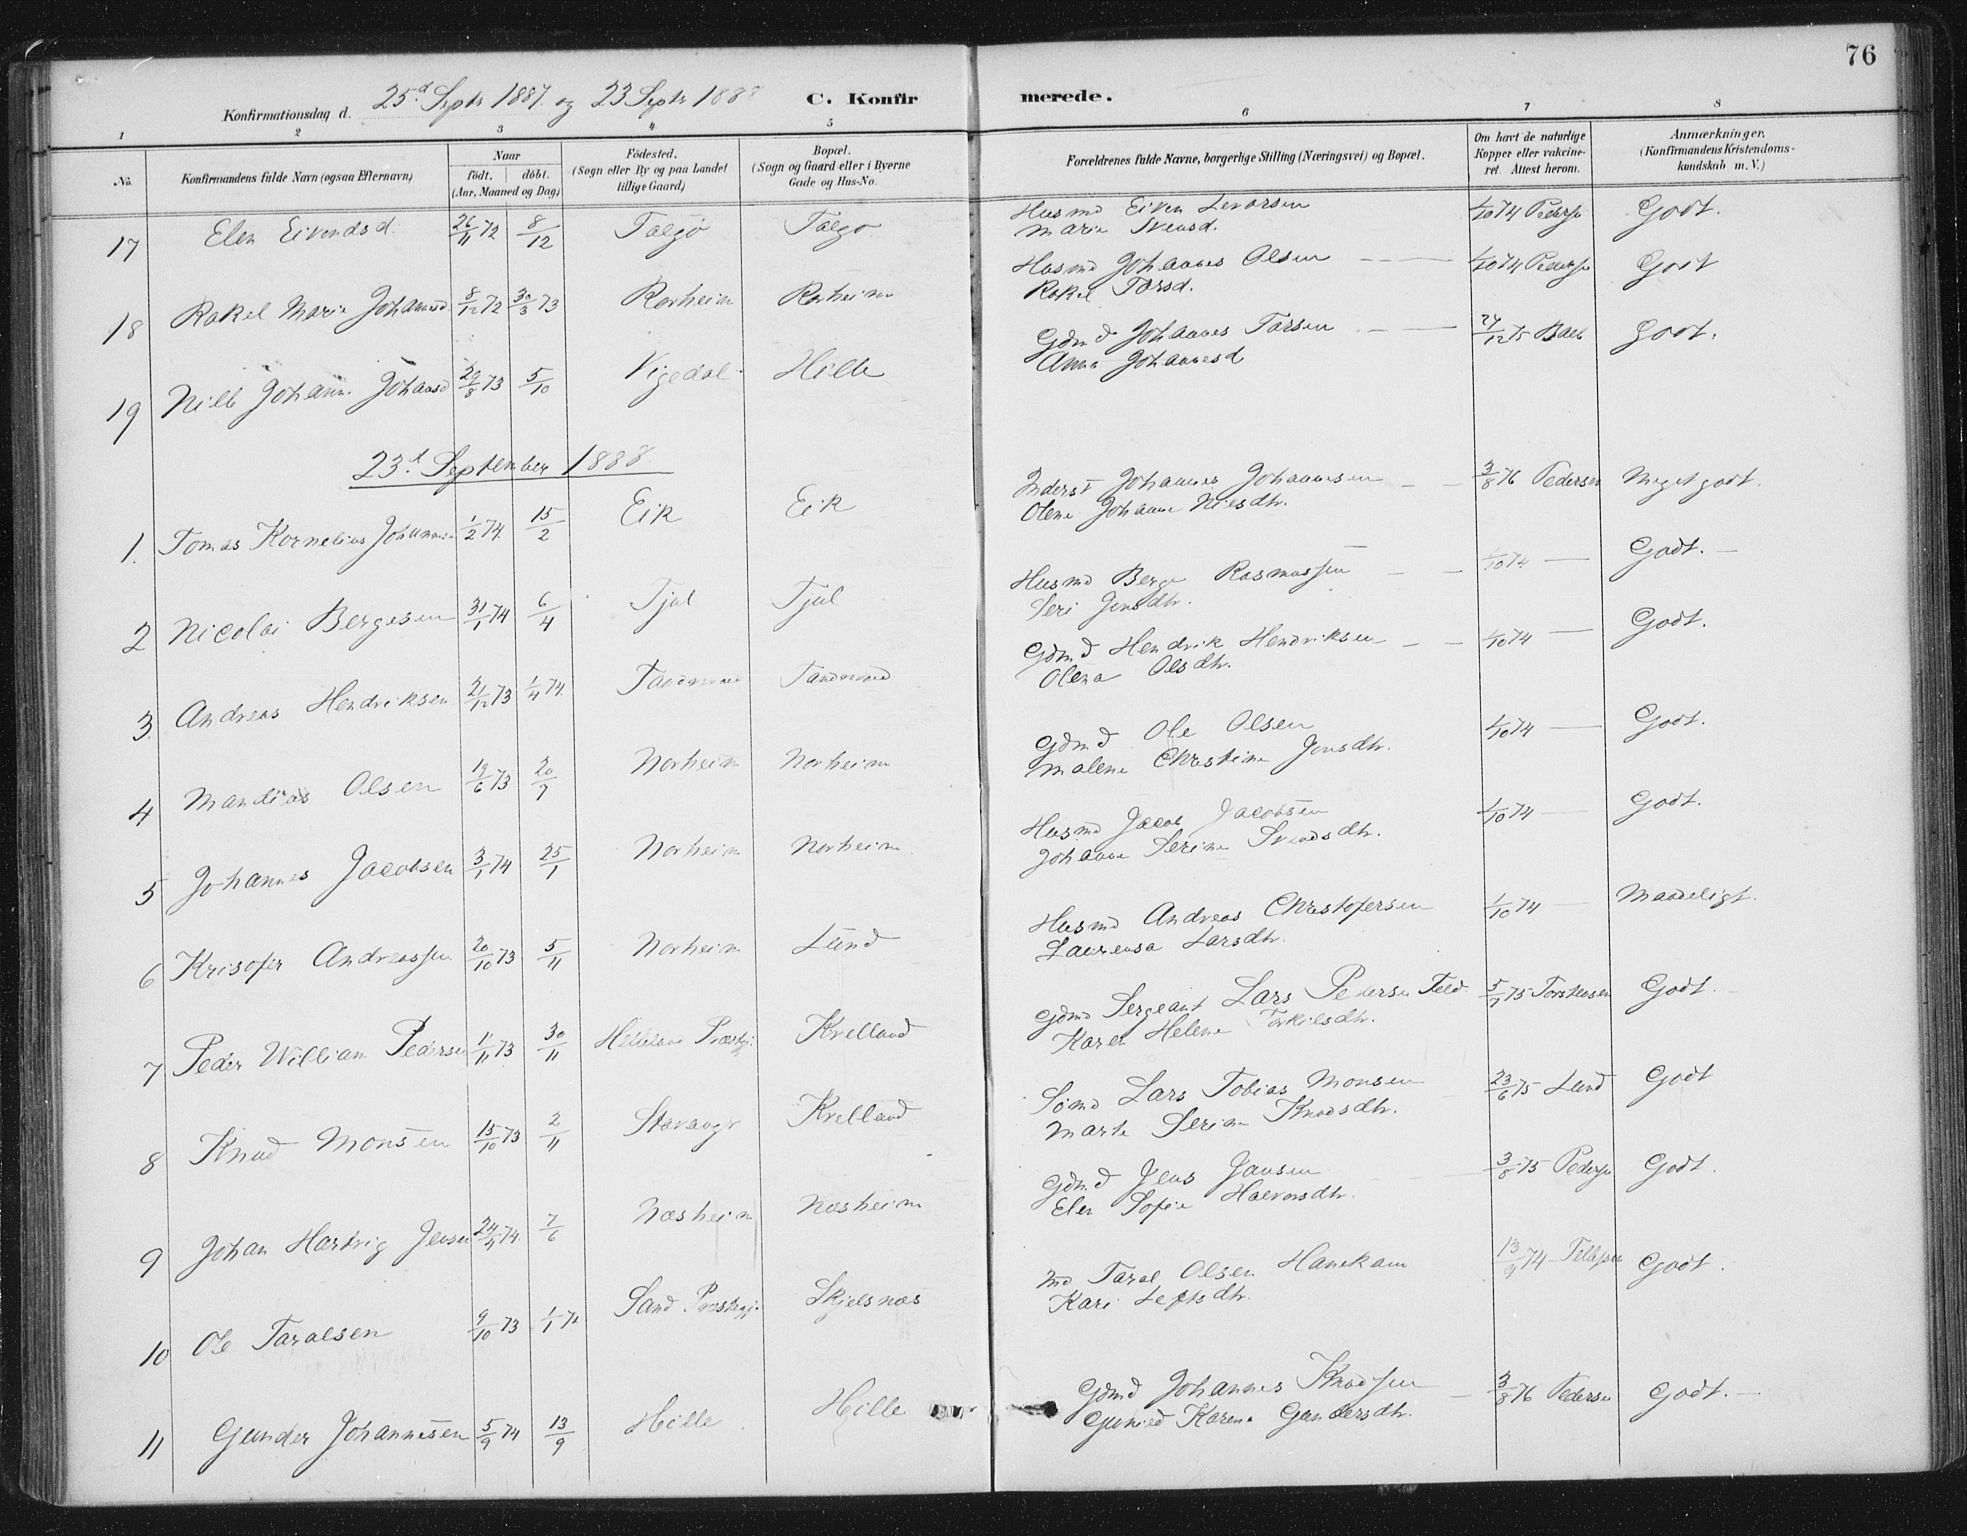 76
Konfirmationsdag d. 25.d Septr 1887. og 23 Septr 1888 C. Konfirmerede.
1 2 3 4 5 6 7 8
No.
Konfirmandens fulde Navn (ogsaa Efternavn)
Naar
födt. döbt.
(Aar, Maaned og Dag)
Födested.
(Sogn eller By og paa Landet
tillige Gaard)
Bopæl.
(Sogn og Gaard eller i Byerne
Gade og Hus-No.
Forældrenes fulde Navne, borgerlige Stilling (Næringsvei) og Bopæl.
Om havt de naturlige
Kopper eller vakcine-
ret. Attest herom.
Anmærkninger.
(Konfirmandens Kristendoms-
kundskab m. V.)
17 Elen Eivendsd. 26/11 72 8/12 Talgö Talgö Husmd Eiven Levorsen 1/10 74 Peders Godt.
Marie Svensd.
18 Rakel Marie Johannesd 8/12 72 30/3 73 Rorheim Rorheim Husmd Johannes Olsen 1/10 74 Peders Godt
Rakel Torsd.
19 Johann 29/8 73 5/10 Vigedal Hille Gdmd Johannes Torsen 24/12 75 Godt.
Anna Johannesd
23.d September 1888.
1. Tomas Kornelius Johannesen 1/2 74. 15/2 Eik Eik Inderst Johannes Johannesen 3/8 76 Pedersen Meget godt.
Olene Johanne Nilsdtr.
2 Nicolai Bergesen 31/1 74 6/4 Tjul Tjul Husmd Berge Rasmussen 1/10 74 Godt.
Seri Jensdtr.
3. Andreas Hendriksen 21/12 73 1/4 74. Gdmd Hendrik Hendriksen 1/10 74 Godt.
Olena Olsdtr.
4 Mandias Olsen 19/6 73 20/7 Norheim Norheim Gdmd Ole Olsen 1/10 74 Godt.
Malene Christine Jensdtr.
5 Johannes Jacobsen 3/1 74 25/1 Norheim Norheim Husmd Jacob Jacobsen 1/10 74 Godt.
Johanne Serine Svendsdtr.
6 Krisofer Andreassen 20/10 73 5/11 Norheim Lund Husmd Andreas Christofersen 1/10 74 Maadeligt.
Laurensa Larsdtr.
7 Peder William Pedersen 11/11 73 30/11 Helleland Præstgj. Krelland Gdmd Sergeant Lars Pedersen Feld 75 Torstensen Godt.
Karen Helene Torkilsdtr.
8 Knud Monsen 15/10 73 2/11 Stavanger Krelland Sömd Lars Tobias Monsen 23/6 75 Lund Godt
Marte Serine Knudsdtr.
9 Johan Hartvig Jensen 24/4 74. 7/6 Næsheim Næsheim Gdmd Jens Jansen 3/8 75 Peders Godt.
Elen Sofie Halvorsdtr.
10 Ole Taralsen 9/10 73 1/1 74 Sand Præstegj. Skjelsnæs Taral Olsen Hanekam 13/9 74 Godt.
Kari Leifsdtr.
11 Gunder Johannesen 5/9 74 13/9 Hille Hille Gdmd Johannes Knudsen 3/8 76 Pedersen Godt.
Gunild Karene Gundersdtr.